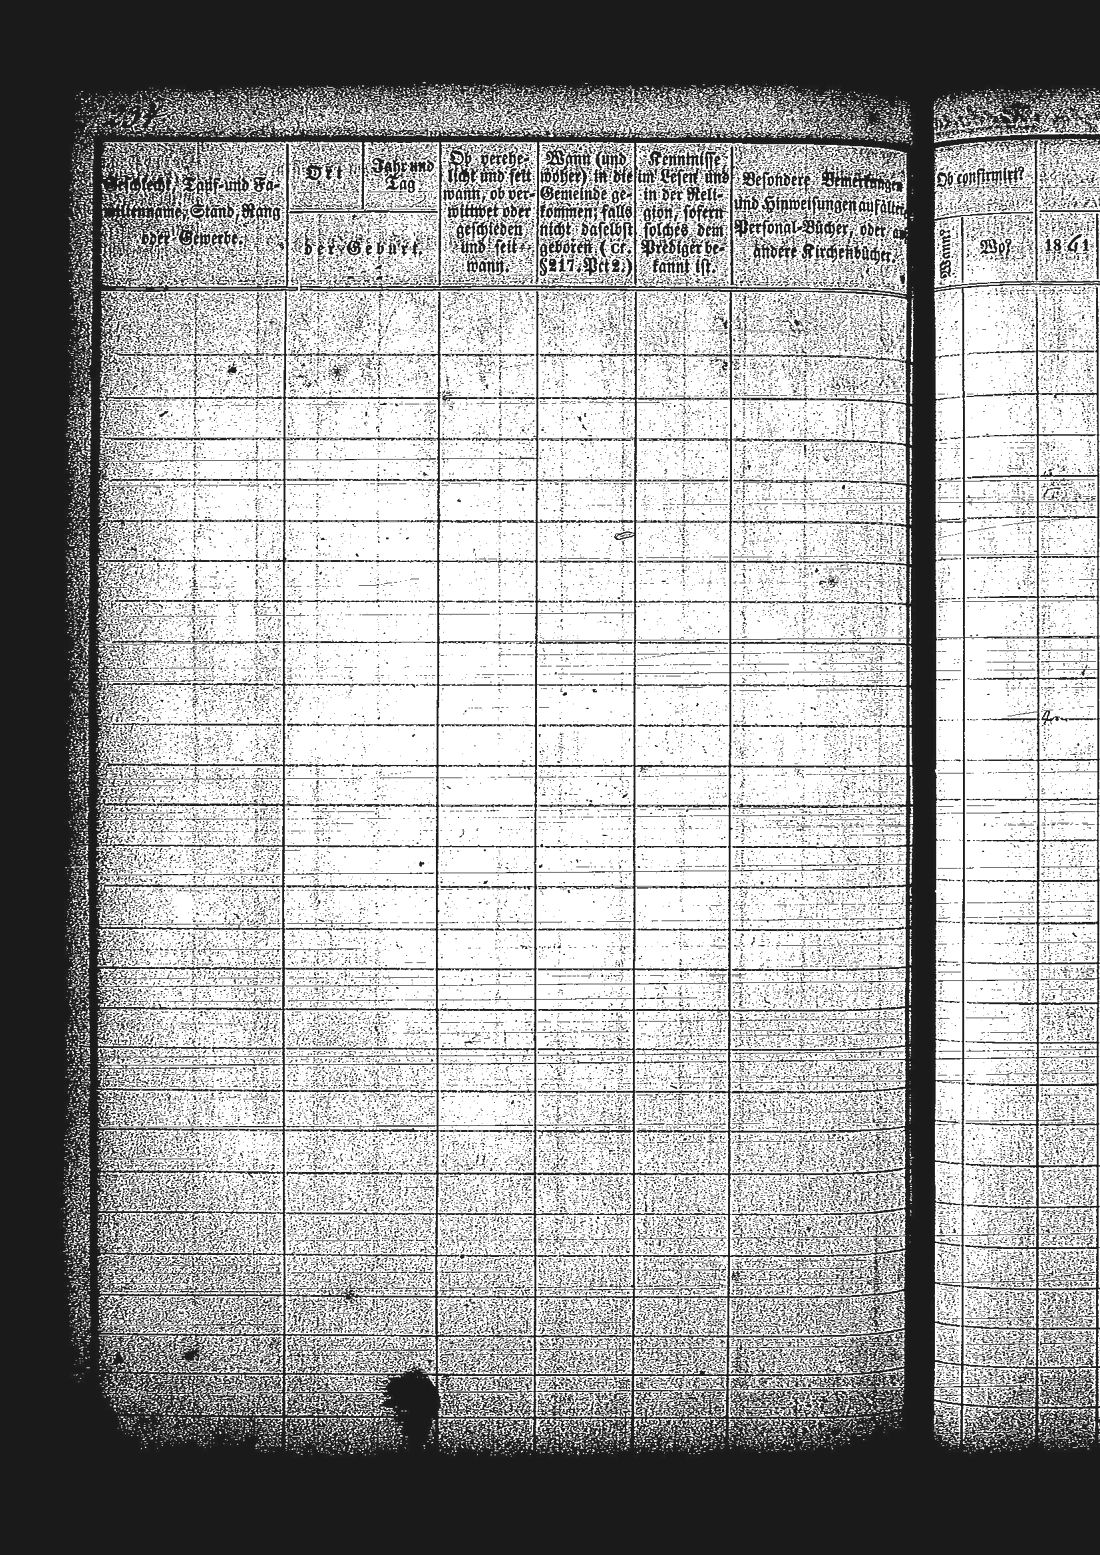 Geschlecht, Tauf- und Fa-
milienname, Stand, Rang
oder Gewerbe.
Ort
Jahr und
Tag
der Geburt.
Ob verehe-
licht und seit
wann, ob ver-
wittwet oder
geschieden
und seit
wann.
Wann (und
woher) in die
Gemeinde ge-
kommen; falls
nicht daselbst
geboren (cf.
§217. Pct 2.)
Kenntnisse
im Lesen und
in der Reli-
gion, sofern
solches dem
Prediger be-
kannt ist.
Besondere Bemerkungen
und Hinweisungen auf ältere
Personal-Bücher, oder auf
andere Kirchenbücher.
Ob confirmirt?
Wann?
Wo?
1861